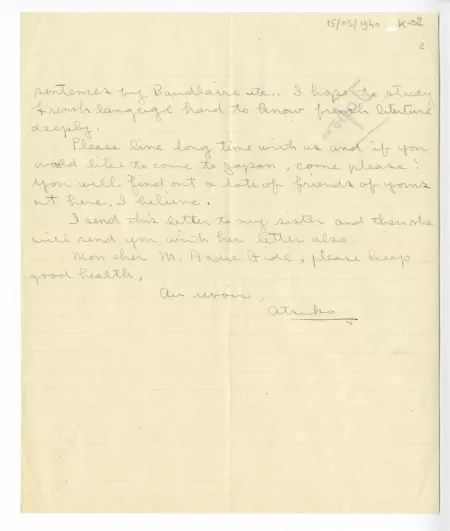 15/05/1940 K-02
2
sentences by Baudlaire etc.. I hope to study
french langage hard to know french literture
deeply.
Please line long time with us and if you
would like to come to Japan, come please!
You will find out a lots of friends of yours
at here, I believe.
I send this letter to my sister and then she
will send you with her letter also.
Mon cher M. André Gide, please keep
good health,
Au revoir,
Atsuko